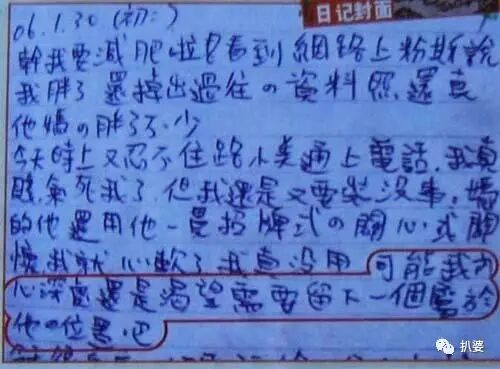 06.1.30(初二)
日记封面
幹我要減肥啦!看到網路上粉斯說
我胖了 還掉出過往の資料照,還真
他媽の胖了不少
今天晚上又忍不住跟小美通上電話,我真
氣死我了,但我還是又要裝沒事,媽
的他還用他一貫招牌式の關心或關
懷,我就心軟了我真沒用 可能我內
心深處還是渴望需要留下一個屬於
他の位置吧
扒婆